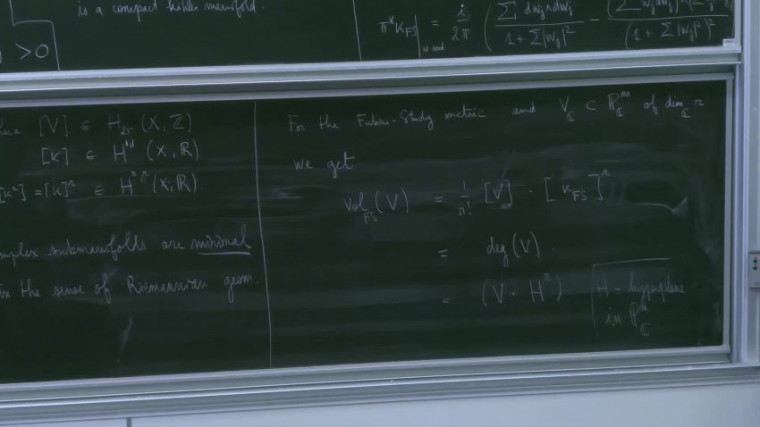 is a compact kähler manifold.
> 0
π* K_FS | = i/2π ( Σ dw_j ∧ dw̄_j / 1 + Σ|w_j|² −
(1 + Σ|w_j|²)²
[V] ∈ H_2r (X, Z)
[K] ∈ H^1,1 (X, R)
= [K]^r ∈ H^r,r (X, R).
submanifolds are minimal
in the sense of Riemannian geom.
For the Fubini-Study metric and V_C ⊂ P_C^m of dim_C r
we get
vol_FS (V) = 1/r! [V] · [K_FS]^r
= deg (V).
= (V · H^r)
H = hyperplane
in P_C^m